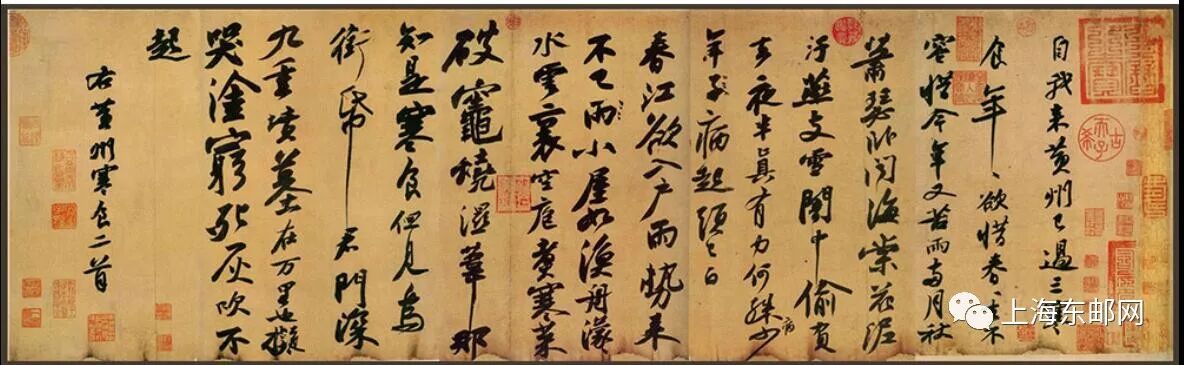 自我来黄州已過三寒
食年〻欲惜春春去不
容惜今年又苦雨兩月秋
蕭瑟卧聞海棠花泥
汙燕支雪闇中偷負
去夜半真有力何殊病少
年子病起頭已白
春江欲入戶雨勢来
不已雨小屋如漁舟濛〻
水雲裏空庖煮寒菜
破竈燒濕葦那
知是寒食但見烏
銜帋君門深
九重墳墓在万里也擬
哭塗窮死灰吹不
起
右黄州寒食二首
上海东邮网